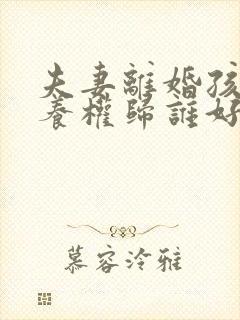 夫妻離婚孩
養權歸誰好
慕容泠雅